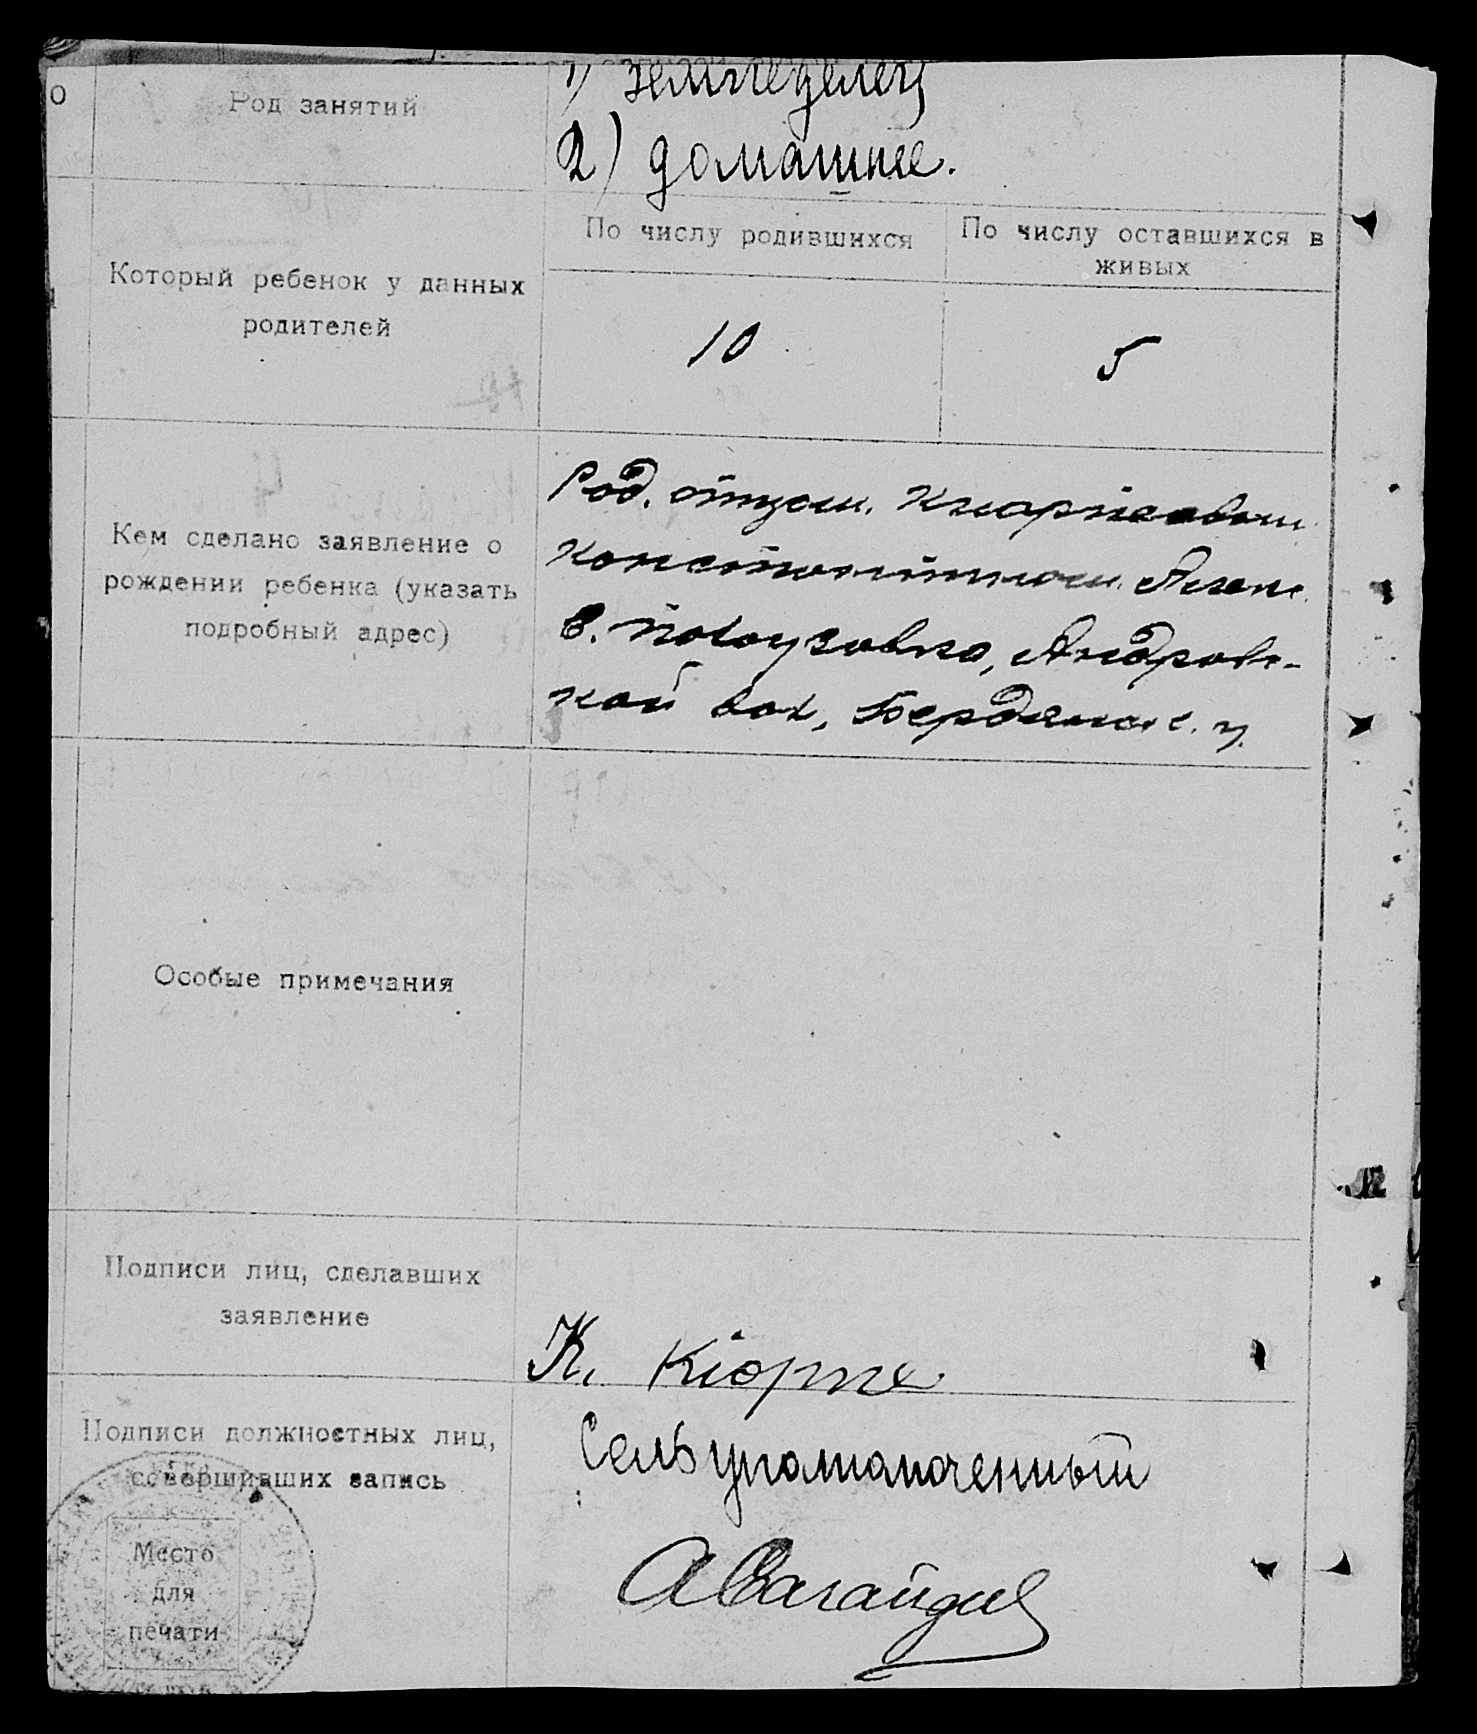 О
Род занятий
1) земледелец
2) домашнее.
Который ребенок у данных
родителей
По числу родившихся
По числу оставшихся в
живых
10
5
Кем сделано заявление о
рождении ребенка (указать
подробный адрес)
Род. отцом.
Константином
Андровс-
кой вол, Бердянск. у.
Особые примечания
Подписи лиц, сделавших
заявление
К. Кіорпе
Подписи должностных лиц,
совершивших запись
Сельуполномоченный
Место
для
печати